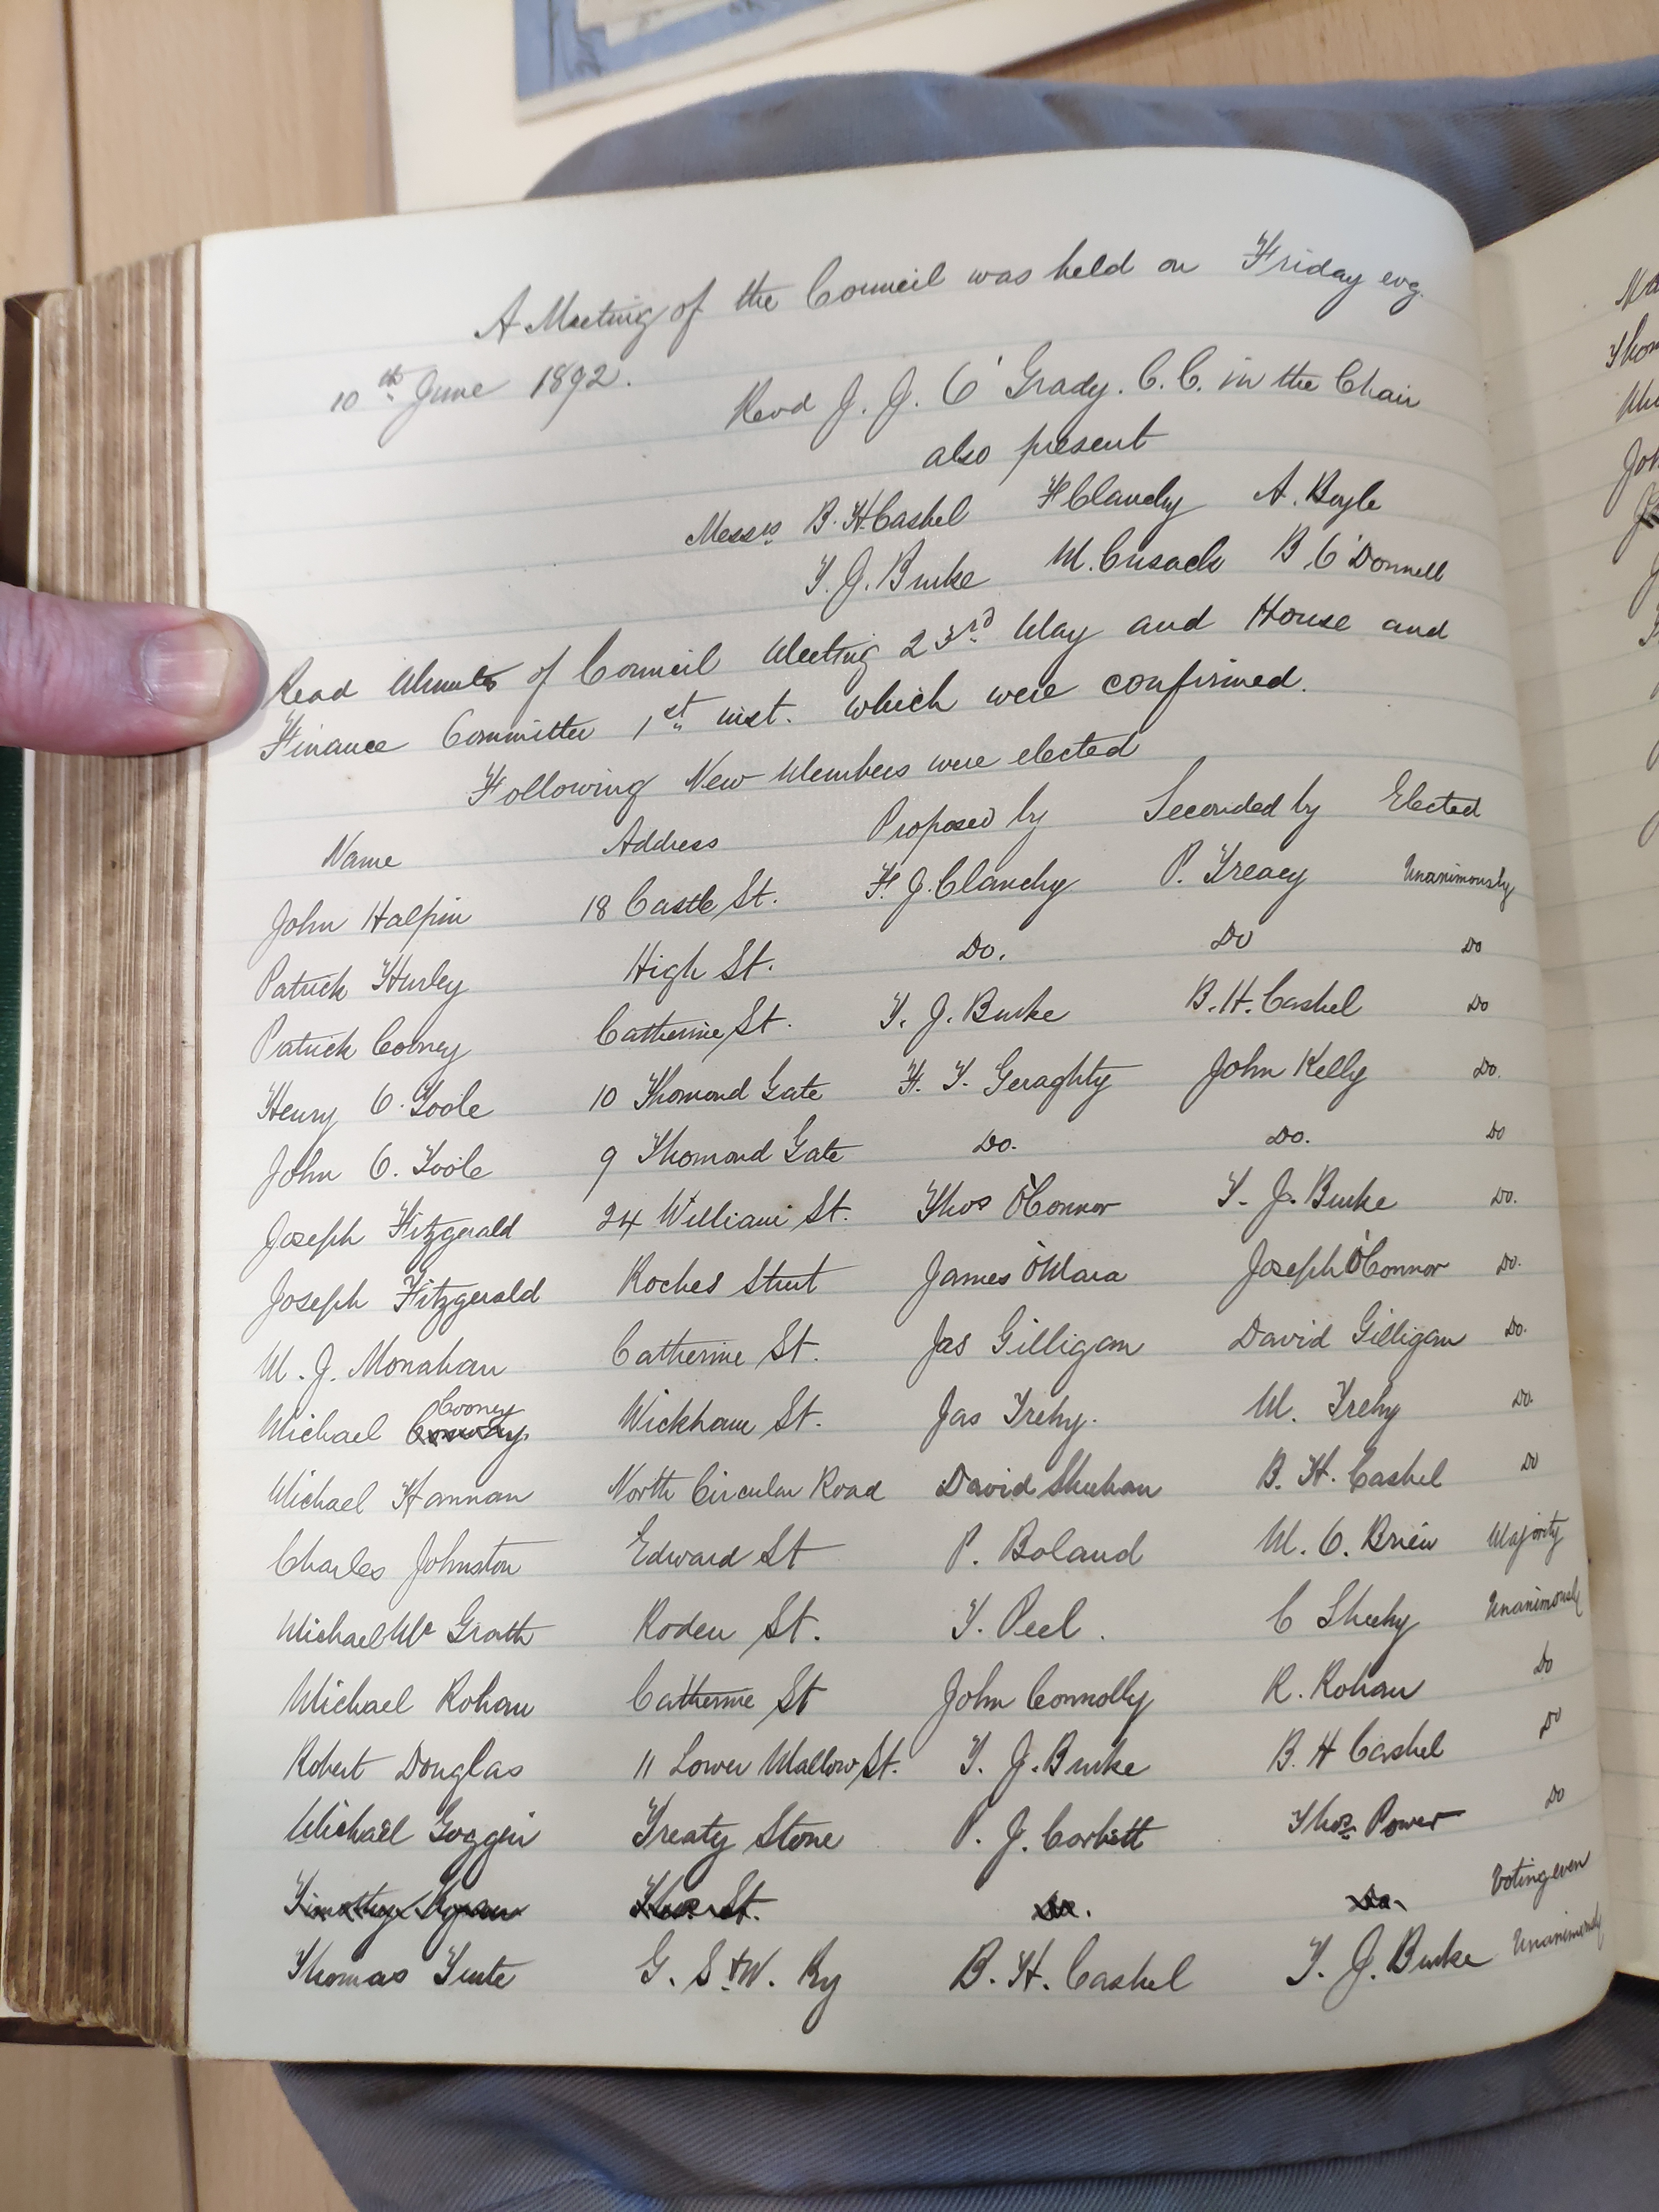 A Meeting of the Council was held on Friday evg.
10th June 1892.
Revd J. J. O'Grady. C. C. in the Chair
also present
Messrs B. H. Cashel F Clanchy A. Boyle
T. J. Burke M. Cusack B O'Donnell
Read Minutes of Council Meeting 23rd May and House and
Finance Committee 1st inst. which were confirmed.
Following New Members were elected
Name Address Proposed by Seconded by Elected
John Halpin 18 Castle St. F. J. Clanchy P. Treacy Unanimously
Patrick Hurley High St. Do. Do Do
Patrick Cooney Catherine St. T. J. Burke B. H. Cashel Do
Henry O. Toole 10 Thomond Gate F. T. Geraghty John Kelly Do.
John O. Toole 9 Thomond Gate Do. Do. Do
Joseph Fitzgerald 24 William St. Thos O'Connor T. J. Burke Do.
Joseph Fitzgerald Roches Street James O'Mara Joseph O'Connor Do.
M. J. Monahan Catherine St. Jas Gilligan David Gilligan Do.
Michael Cooney Wickham St. Jas Trehy. M. Trehy Do.
Michael Hannan North Circular Road David Sheehan B. H. Cashel Do
Charles Johnston Edward St P. Boland M. O. Brien Majority
Michael Mc Grath Roden St. T. Peel. C Sheehy Unanimously
Michael Rohan Catherine St John Connolly R. Rohan Do
Robert Douglas 11 Lower Mallow St. T. J. Burke B. H Cashel Do
Michael Goggin Treaty Stone P. J. Corbett Thos. Power Do
Timothy Ryan St. Do. Do. Voting even
Thomas Tute G. S & W. Ry B. H. Cashel T. J. Burke Unanimously